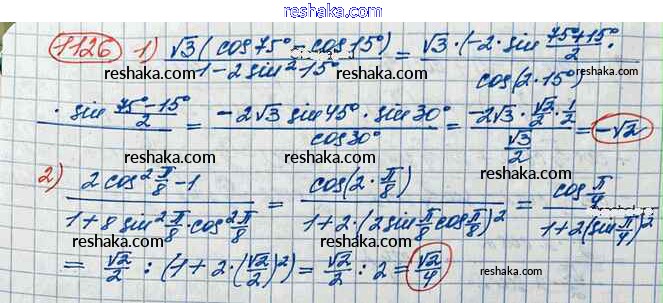 reshaka.com
1126 1) √3(cos75°-cos15°)/(1-2sin²15°) = √3·(-2·sin (75°+15°)/2 ·
reshaka.com reshaka.com cos(2·15°)
· sin (75°-15°)/2 = (-2√3 sin45°·sin30°)/cos30° = (-2√3·√2/2·1/2)/(√3/2) = -√2
reshaka.com reshaka.com
2) (2cos² π/8 - 1)/(1+8sin² π/8·cos² π/8) = cos(2·π/8)/(1+2·(2sin π/8 cos π/8)²) = cos π/4/(1+2(sin π/4)²)
reshaka.com reshaka.com
= √2/2 : (1+2·(√2/2)²) = √2/2 : 2 = √2/4
reshaka.com
reshaka.com